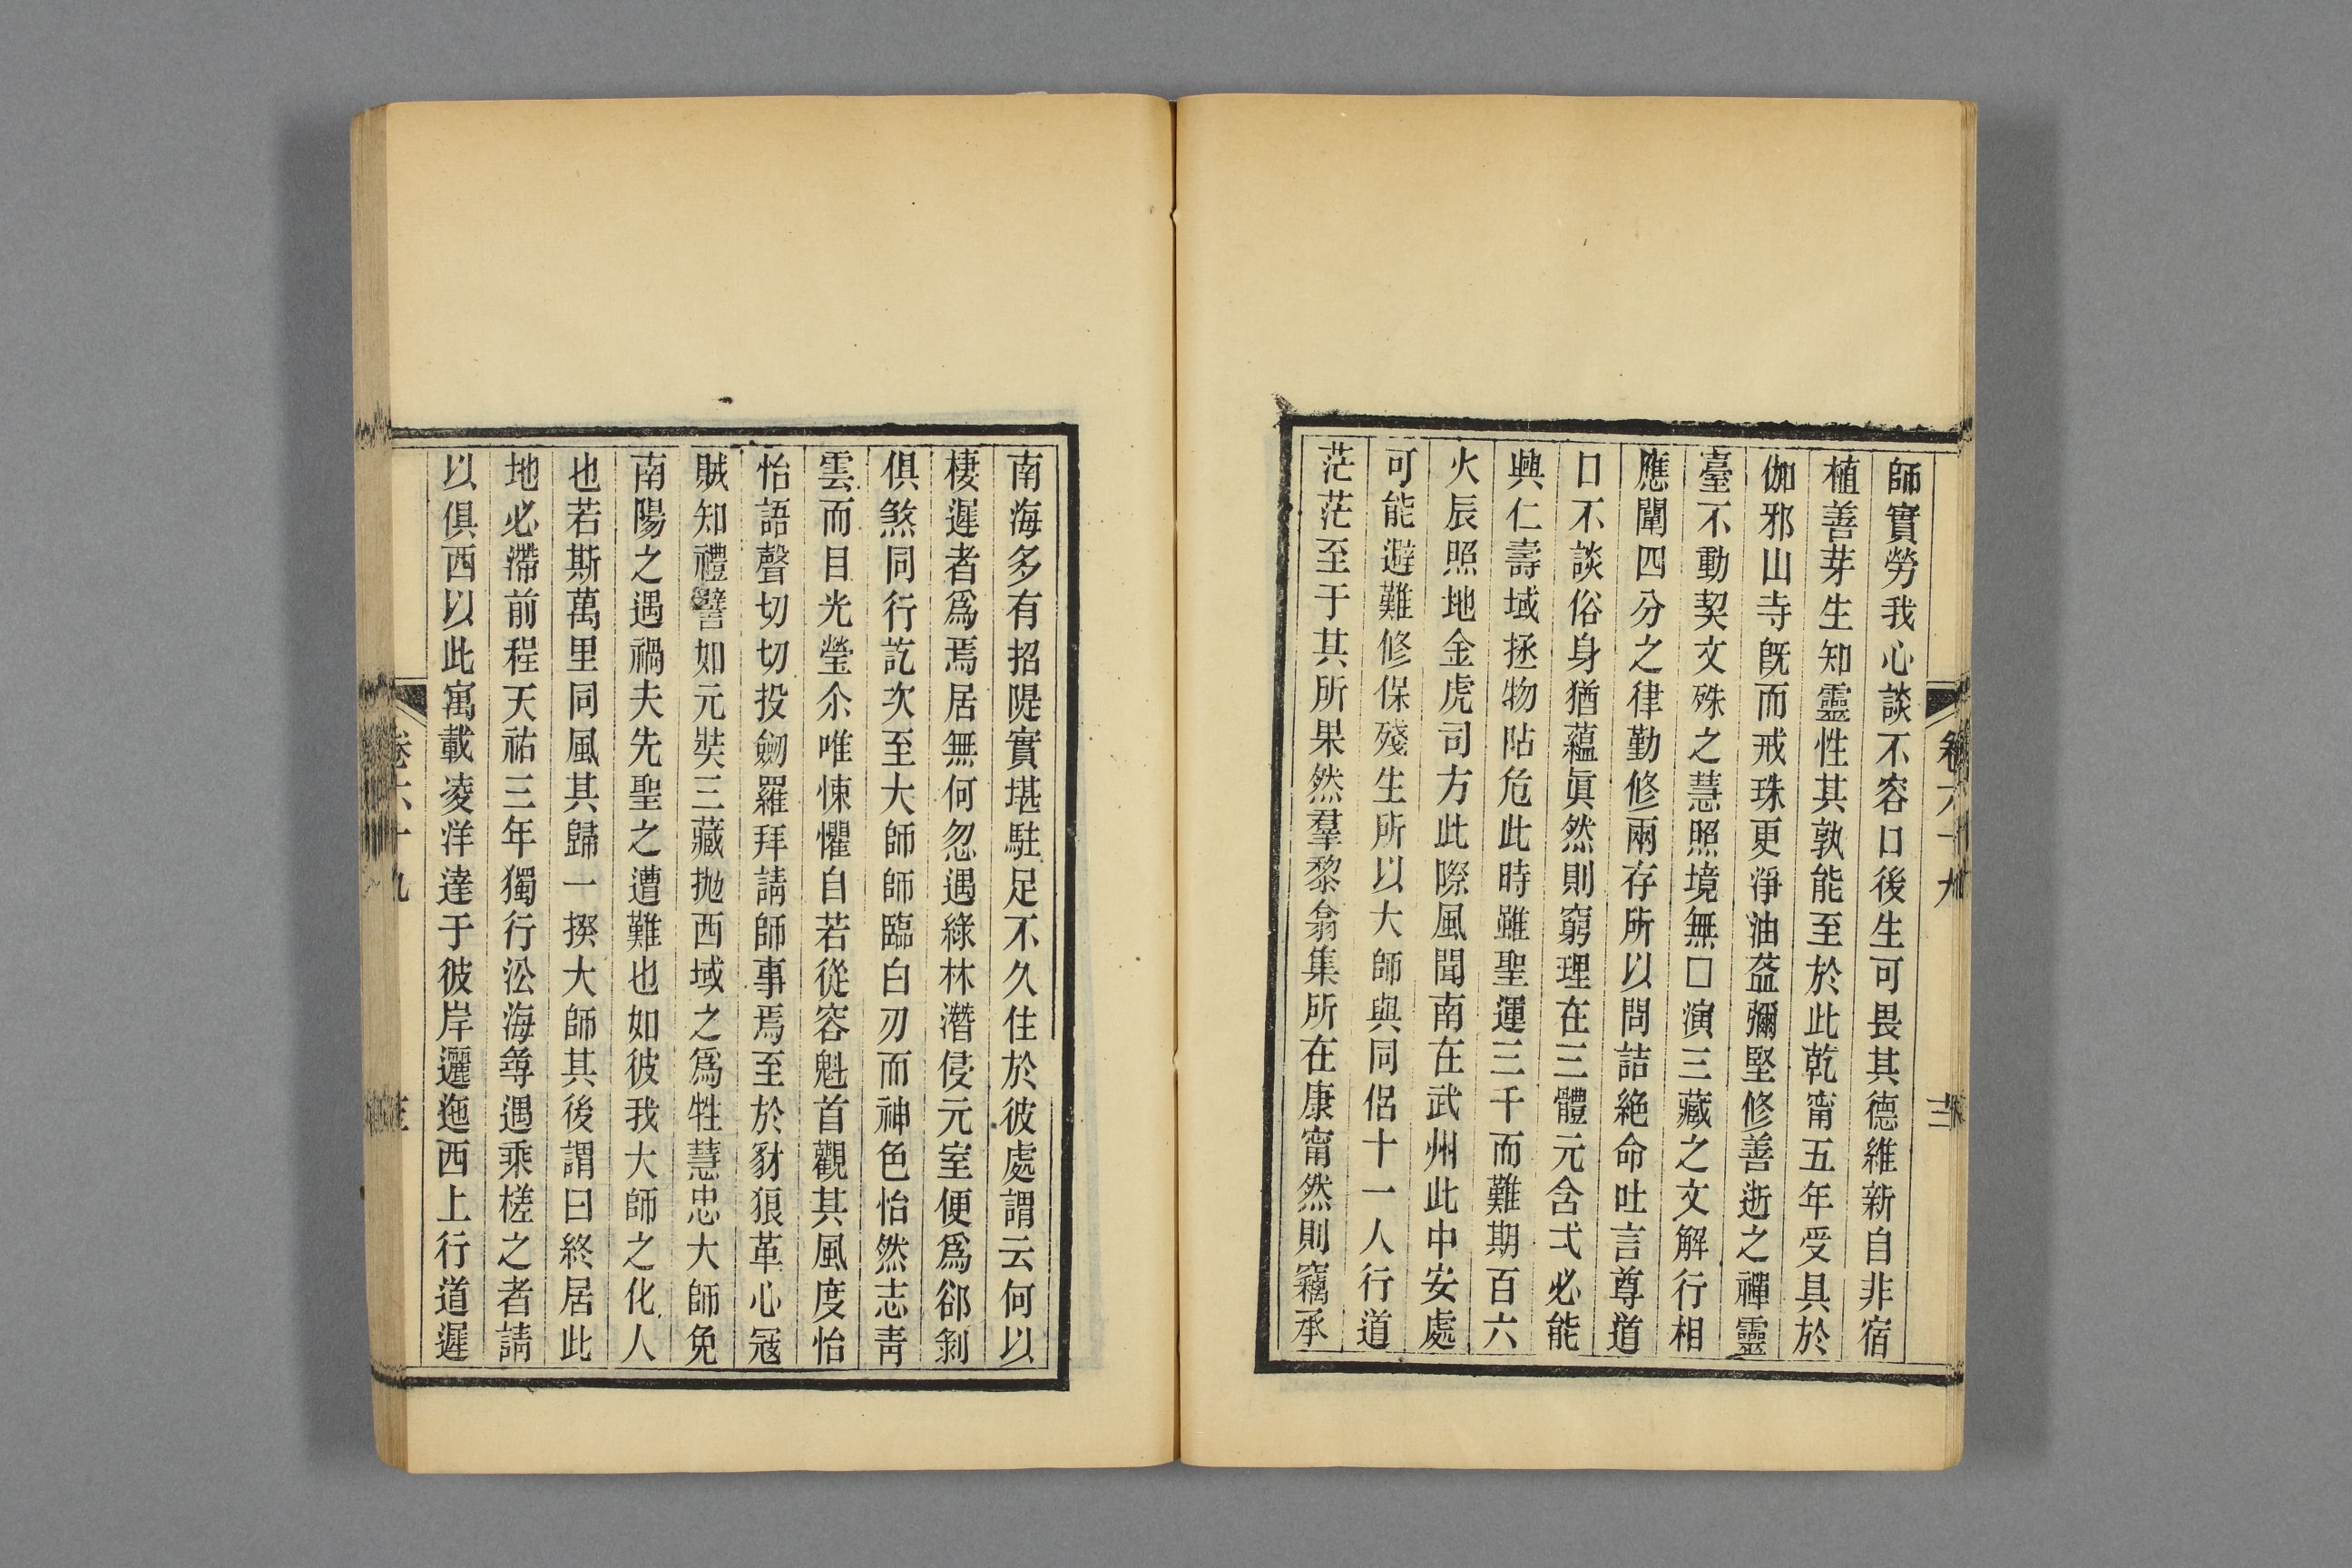 師實勞我心談不容口後生可畏其德維新自非宿
植善芽生知靈性其孰能至於此乾甯五年受具於
伽邪山寺旣而戒珠更淨油葢彌堅修善逝之禪靈
臺不動契文殊之慧照境無□演三藏之文解行相
應闡四分之律勤修兩存所以問詰絶命吐言尊道
口不談俗身猶蘊眞然則窮理在三體元含弌必能
興仁壽域拯物阽危此時雖聖運三千而難期百六
火辰照地金虎司方此際風聞南在武州此中安處
可能避難修保殘生所以大師與同侶十一人行道
茫茫至于其所果然羣黎翕集所在康甯然則竊承
南海多有招隄實堪駐足不久住於彼處謂云何以
棲遲者爲焉居無何忽遇綠林潛侵元室便爲郤剝
俱煞同行訖次至大師師臨白刃而神色怡然志靑
雲而目光瑩尒唯悚懼自若從容魁首觀其風度怡
怡語聲切切投劒羅拜請師事焉至於豺狼革心冦
賊知禮譬如元奘三藏拋西域之爲牲慧忠大師免
南陽之遇禍夫先聖之遭難也如彼我大師之化人
也若斯萬里同風其歸一揆大師其後謂曰終居此
地必滯前程天祐三年獨行沿海尊遇乘槎之者請
以俱西以此寓載凌洋達于彼岸邐迤西上行道遲
卷六十九